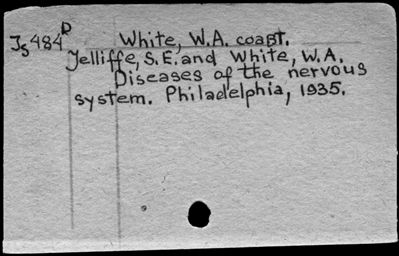 Js484D White, W.A. coaвт.
Jelliffe, S.E. and White, W.A.
Diseases of the nervous
system. Philadelphia, 1935.